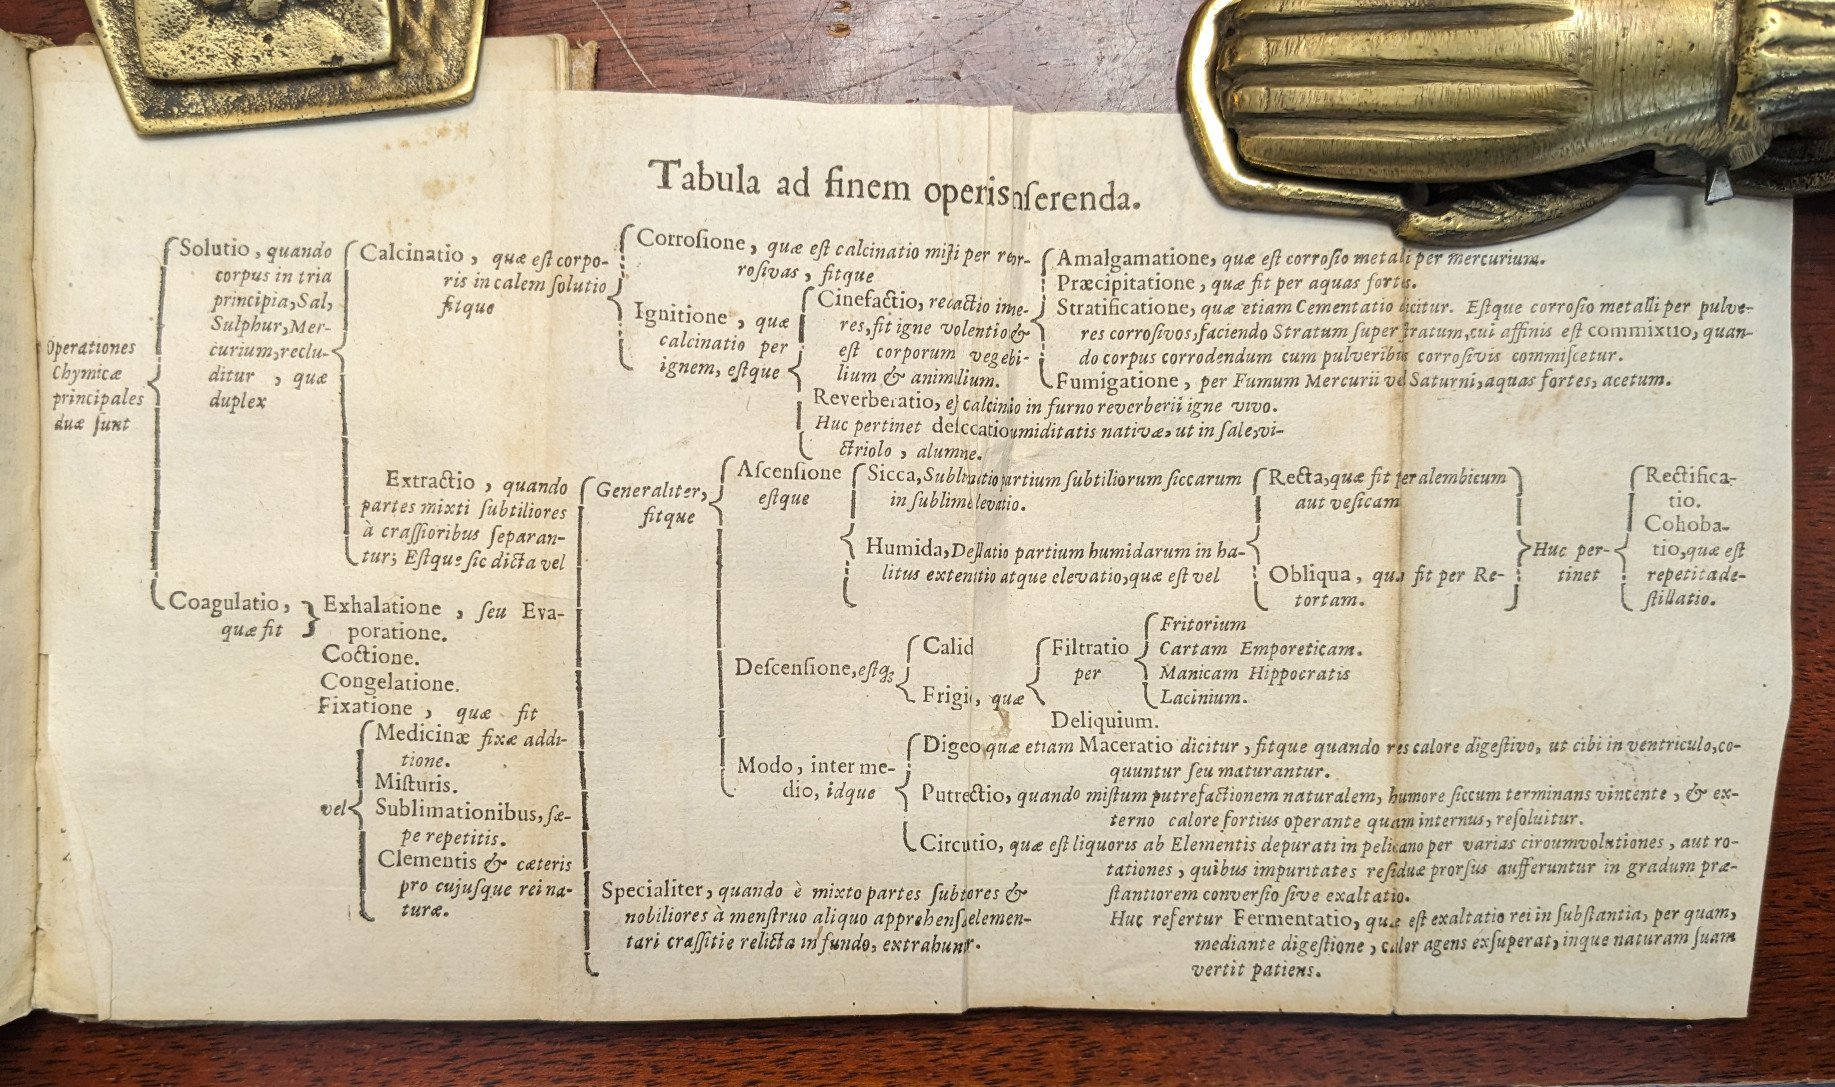 Tabula ad finem operis nſerenda.
Operationes
Chymicæ
principales
duæ ſunt
Solutio, quando
corpus in tria
principia, Sal,
Sulphur, Mer-
curium, reclu-
ditur , quæ
duplex
Calcinatio , quæ eſt corpo-
ris in calem ſolutio
fitque
Corroſione, quæ eſt calcinatio miſti per
roſivas, fitque
Amalgamatione, quæ eſt corroſio metalli per mercurium.
Præcipitatione, quæ fit per aquas fortes.
Stratificatione, quæ etiam Cementatio dicitur. Eſtque corroſio metalli per pulve-
res corroſivos, faciendo Stratum ſuper ſtratum, cui affinis eſt commixtio, quan-
do corpus corrodendum cum pulveribus corroſivis commiſcetur.
Fumigatione, per Fumum Mercurii vel Saturni, aquas fortes, acetum.
Ignitione , quæ
calcinatio per
ignem, eſtque
Cinefactio, in cine-
res, fit igne volentio &
eſt corporum vegebi-
lium & animalium.
Reverberatio, in furno reverberii igne vivo.
Huc pertinet nativæ, ut in ſale, vi-
ctriolo , alumne.
Extractio , quando
partes mixti ſubtiliores
à craſſioribus ſeparan-
tur; Eſtque ſic dicta vel
Generaliter,
fitque
Aſcenſione
eſtque
Sicca, partium ſubtiliorum ſiccarum
in ſublime elevatio.
Humida, partium humidarum in ha-
litus atque elevatio, quæ eſt vel
Recta, quæ fit per alembicum
aut veſicam
Obliqua , quæ fit per Re-
tortam.
Huc per-
tinet
Rectifica-
tio.
Cohoba-
tio, quæ eſt
repetita de-
ſtillatio.
Deſcenſione, eſtq;
Calid
Frigi , quæ
Filtratio
per
Fritorium
Cartam Emporeticam.
Manicam Hippocratis
Lacinium.
Deliquium.
Modo, inter me-
dio, idque
Digeo quæ etiam Maceratio dicitur, fitque quando res calore digeſtivo, ut cibi in ventriculo, co-
quuntur ſeu maturantur.
Putrectio, quando miſtum putrefactionem naturalem, humore ſiccum terminans vincente , & ex-
terno calore fortius operante quam internus, reſoluitur.
Circutio, quæ eſt liquoris ab Elementis depurati in pelicano per varias circumvolutiones , aut ro-
tationes , quibus impuritates reſiduæ prorſus aufferuntur in gradum præ-
ſtantiorem converſio ſive exaltatio.
Huc refertur Fermentatio, quæ eſt exaltatio rei in ſubſtantia, per quam,
mediante digeſtione , calor agens exſuperat, inque naturam ſuam
vertit patiens.
Specialiter, quando è mixto partes &
nobiliores à menſtruo aliquo elemen-
tari craſſitie relicta in fundo, extrahunt.
Coagulatio,
quæ fit
Exhalatione , ſeu Eva-
poratione.
Coctione.
Congelatione.
Fixatione , quæ fit
vel
Medicinæ fixæ addi-
tione.
Miſturis.
Sublimationibus, ſæ-
pe repetitis.
Clementis & cæteris
pro cujuſque rei na-
turæ.